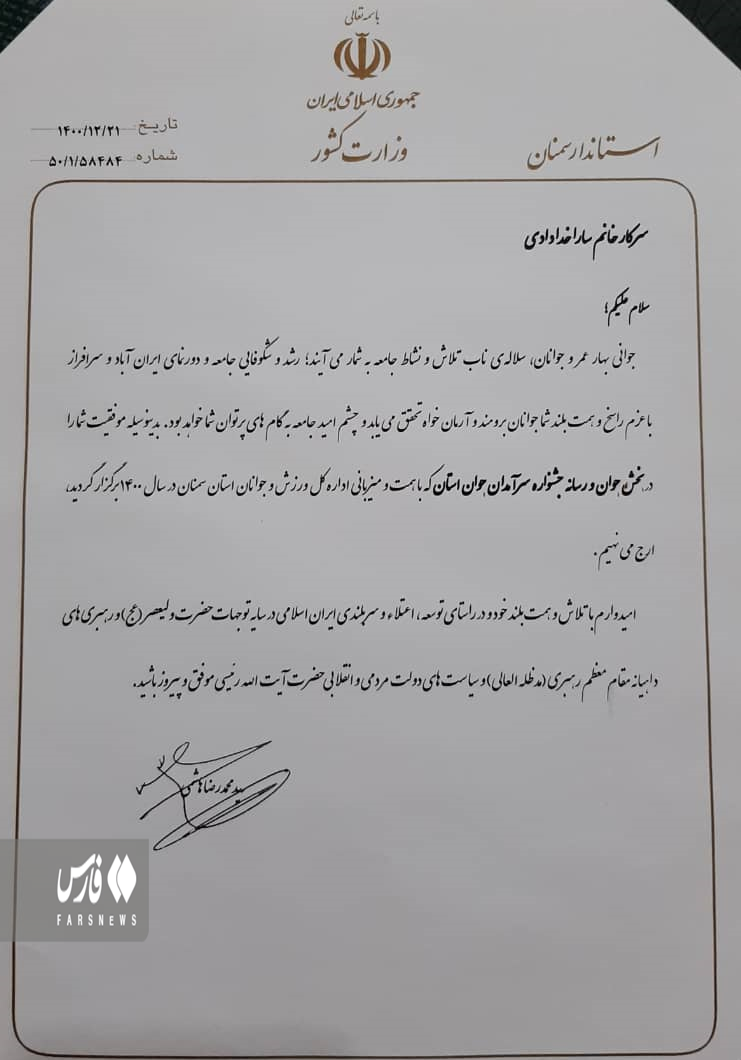 باسمه تعالی
جمهوری اسلامی ایران
وزارت کشور
استاندار سمنان
تاریخ ۱۴۰۰/۱۲/۲۱
شماره ۵۰/۱/۵۸۴۸۴
سرکار خانم سارا خدادادی
سلام علیکم؛
جوانی بهار عمر و جوانان، سلاله‌ی ناب تلاش و نشاط جامعه به شمار می آیند؛ رشد و شکوفایی جامعه و دورنمای ایران آباد و سرافراز
با عزم راسخ و همت بلند شما جوانان برومند و آرمان خواه تحقق می یابد و چشم امید جامعه به گام های پرتوان شما خواهد بود. بدینوسیله موفقیت شما را
در بخش جوان و رسانه جشنواره سرآمدان جوان استان که با همت و میزبانی اداره کل ورزش و جوانان استان سمنان در سال ۱۴۰۰ برگزار گردید،
ارج می نهیم.
امیدوارم با تلاش و همت بلند خود و در راستای توسعه، اعتلاء و سربلندی ایران اسلامی در سایه توجهات حضرت ولیعصر (عج) و رهبری های
داهیانه مقام معظم رهبری (مدظله العالی) و سیاست های دولت مردمی و انقلابی حضرت آیت الله رئیسی موفق و پیروز باشید.
سید محمدرضا هاشمی
فارس
FARSNEWS